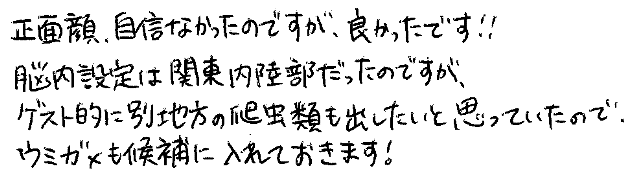 正面顔、自信なかったのですが、良かったです!!
脳内設定は関東内陸部だったのですが、
ゲスト的に別地方の爬虫類も出したいと思っていたので、
ウミガメも候補に入れておきます!